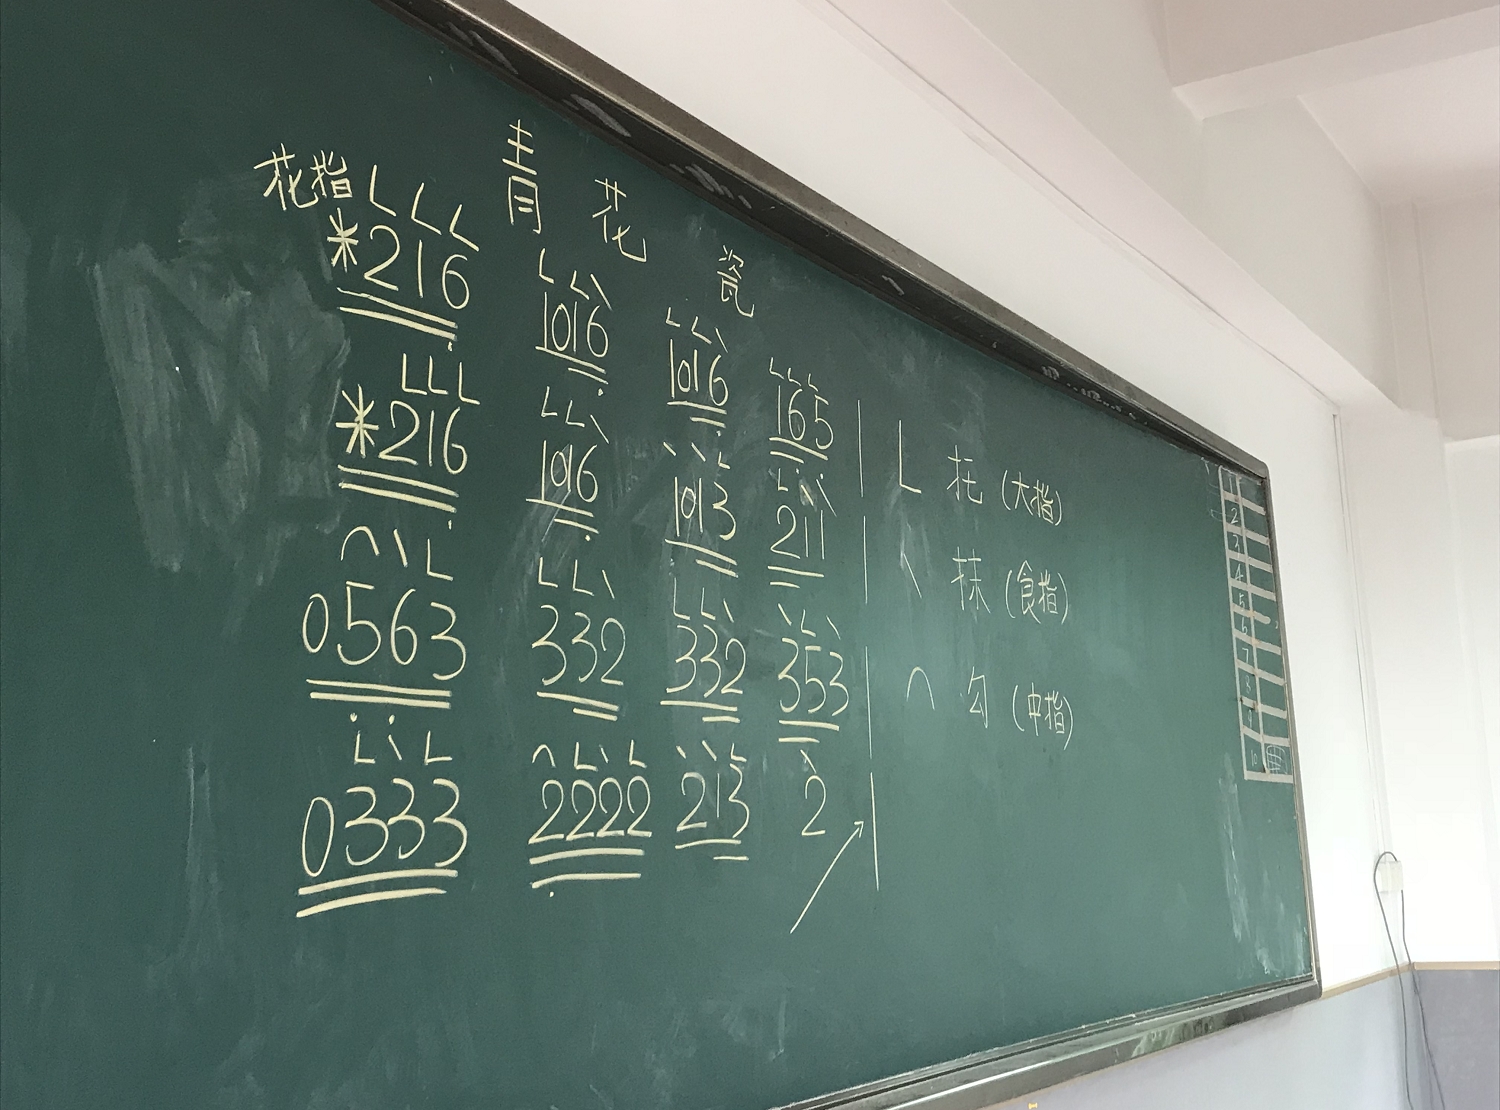 青花瓷
花指 L L L
*216 1016 1016 165
*216 1016 1013 211
0563 332 332 353
0333 2222 213 2
L 托 (大指)
\ 抹 (食指)
⌒ 勾 (中指)
1
2
3
4
5
6
7
8
9
10